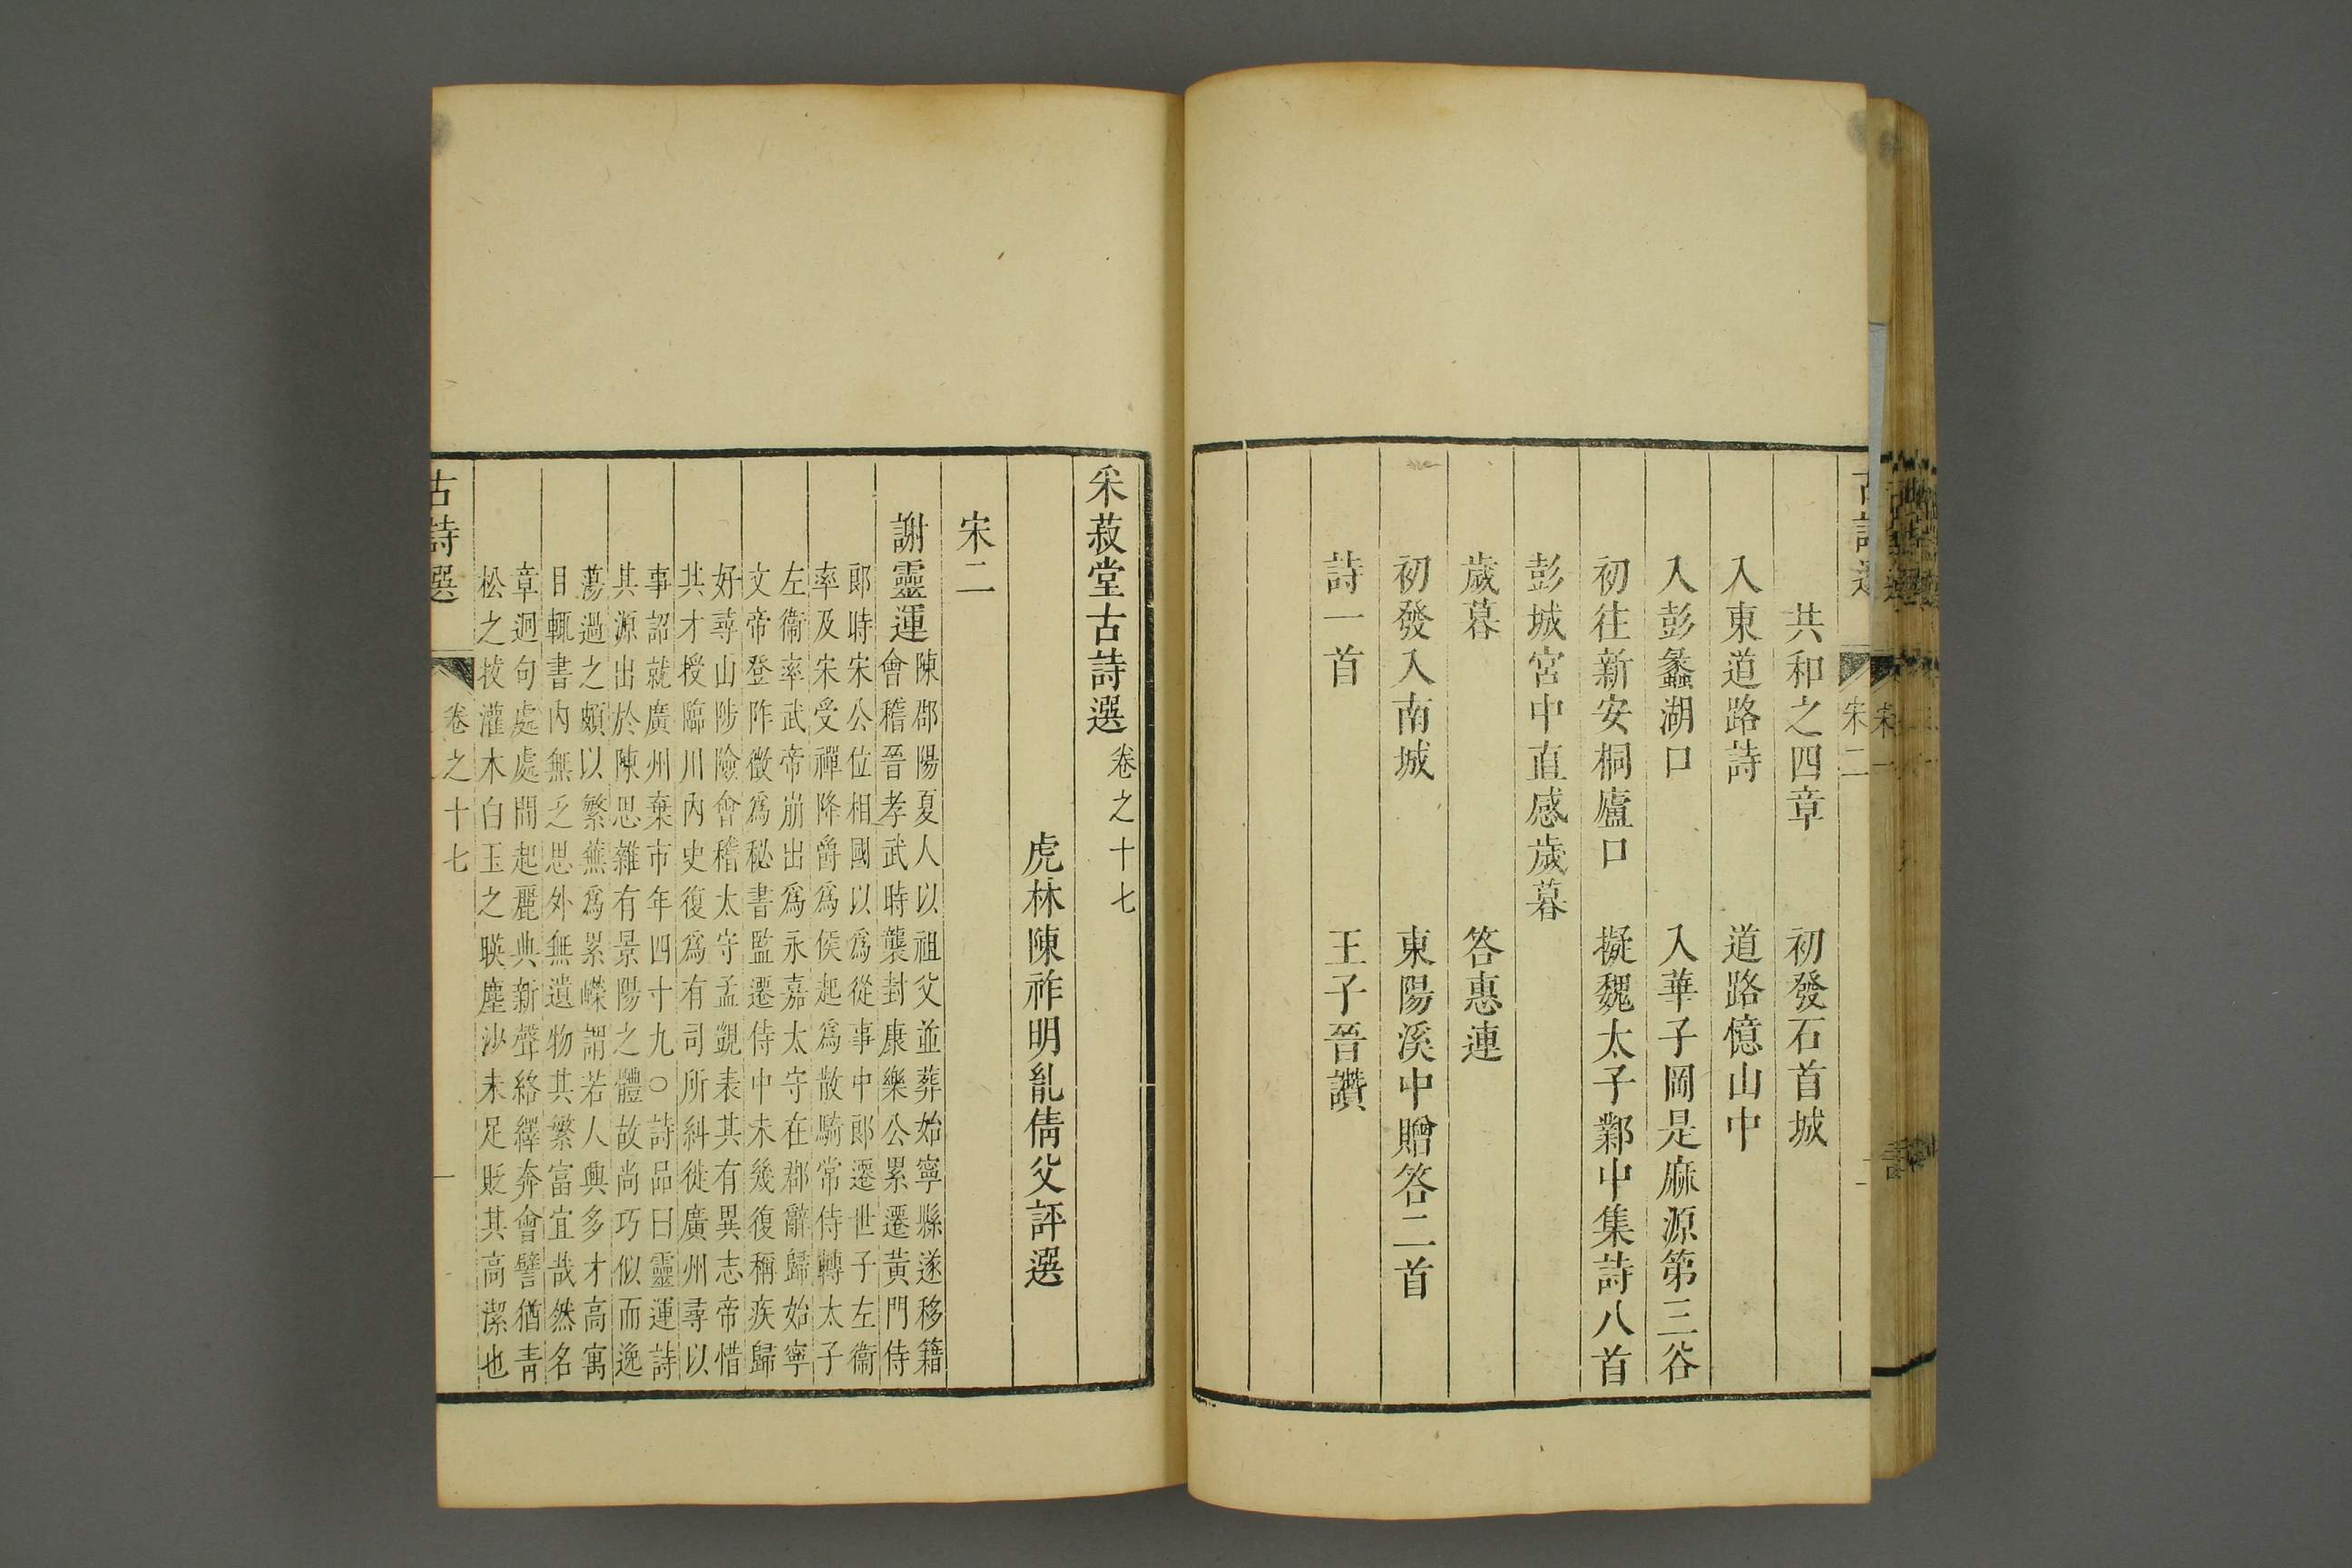 古詩選 宋二
共和之四章 初發石首城
入東道路詩 道路憶山中
入彭蠡湖口 入華子岡是麻源第三谷
初往新安桐廬口 擬魏太子鄴中集詩八首
彭城宮中直感歲暮
歲暮 答惠連
初發入南城 東陽溪中贈答二首
詩一首 王子晉讚
采菽堂古詩選 卷之十七
虎林陳祚明胤倩父評選
宋二
謝靈運
陳郡陽夏人以祖父並葬始寧縣遂移籍
會稽晉孝武時襲封康樂公累遷黃門侍
郎時宋公位相國以爲從事中郎遷世子左衞
率及宋受禪降爵爲侯起爲散騎常侍轉太子
左衞率武帝崩出爲永嘉太守在郡辭歸始寧
文帝登阼徵爲秘書監遷侍中未幾復稱疾歸
好尋山陟險會稽太守孟顗表其有異志帝惜
其才授臨川內史復爲有司所糾徙廣州尋以
事詔就廣州棄市年四十九○詩品曰靈運詩
其源出於陳思雜有景陽之體故尚巧似而逸
蕩過之頗以繁蕪爲累嶸謂若人興多才高寓
目輒書內無乏思外無遺物其繁富宜哉然名
章迥句處處間起麗典新聲絡繹奔會譬猶青
松之拔灌木白玉之映塵沙未足貶其高潔也
古詩選 卷之十七 一